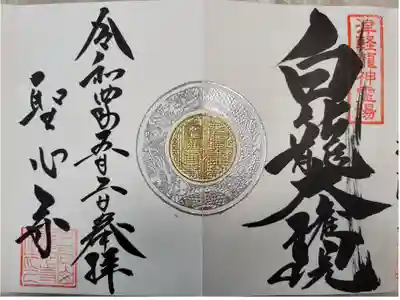 津軽龍神霊場
白龍大権現
令和四年五月六日奉拝
聖心寺